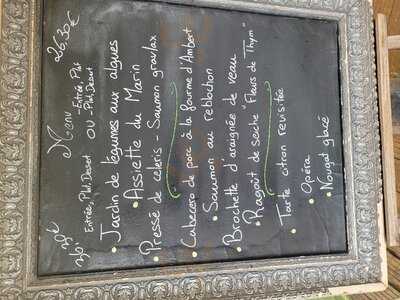 Menu
Entrée, Plat, Dessert OU -Entrée, Plat
-Plat, Dessert
• Jardin de légumes aux algues
• Assiette du Marin
• Pressé de - Saumon gravlax
• Cabecero de porc à la fourme d'Ambert
• Saumon au reblochon
• Brochette d'araignée de veau
• Ragoût de seiche "Fleurs de Thym"
• Tarte citron revisitée
• Opéra
• Nougat glacé